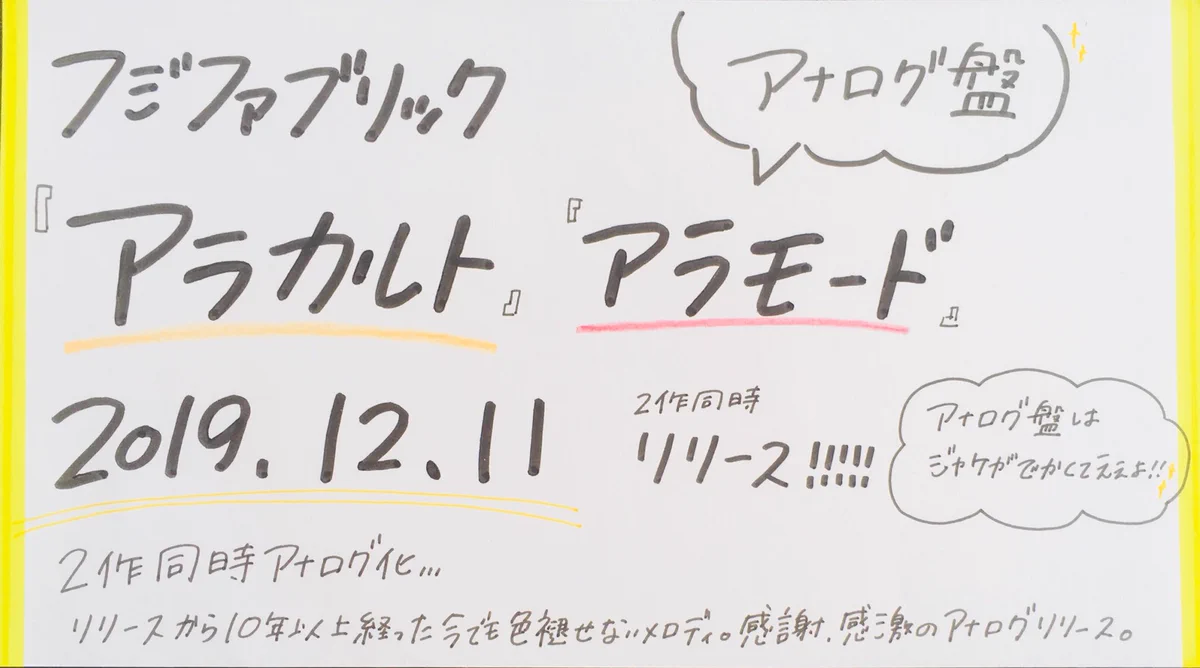 フジファブリック
アナログ盤
『アラカルト』『アラモード』
2019.12.11
2作同時
リリース!!!!!!
アナログ盤は
ジャケがでかくてええよ!!
2作同時アナログ化...
リリースから10年以上経った今でも色褪せないメロディ。感謝、感激のアナログリリース。